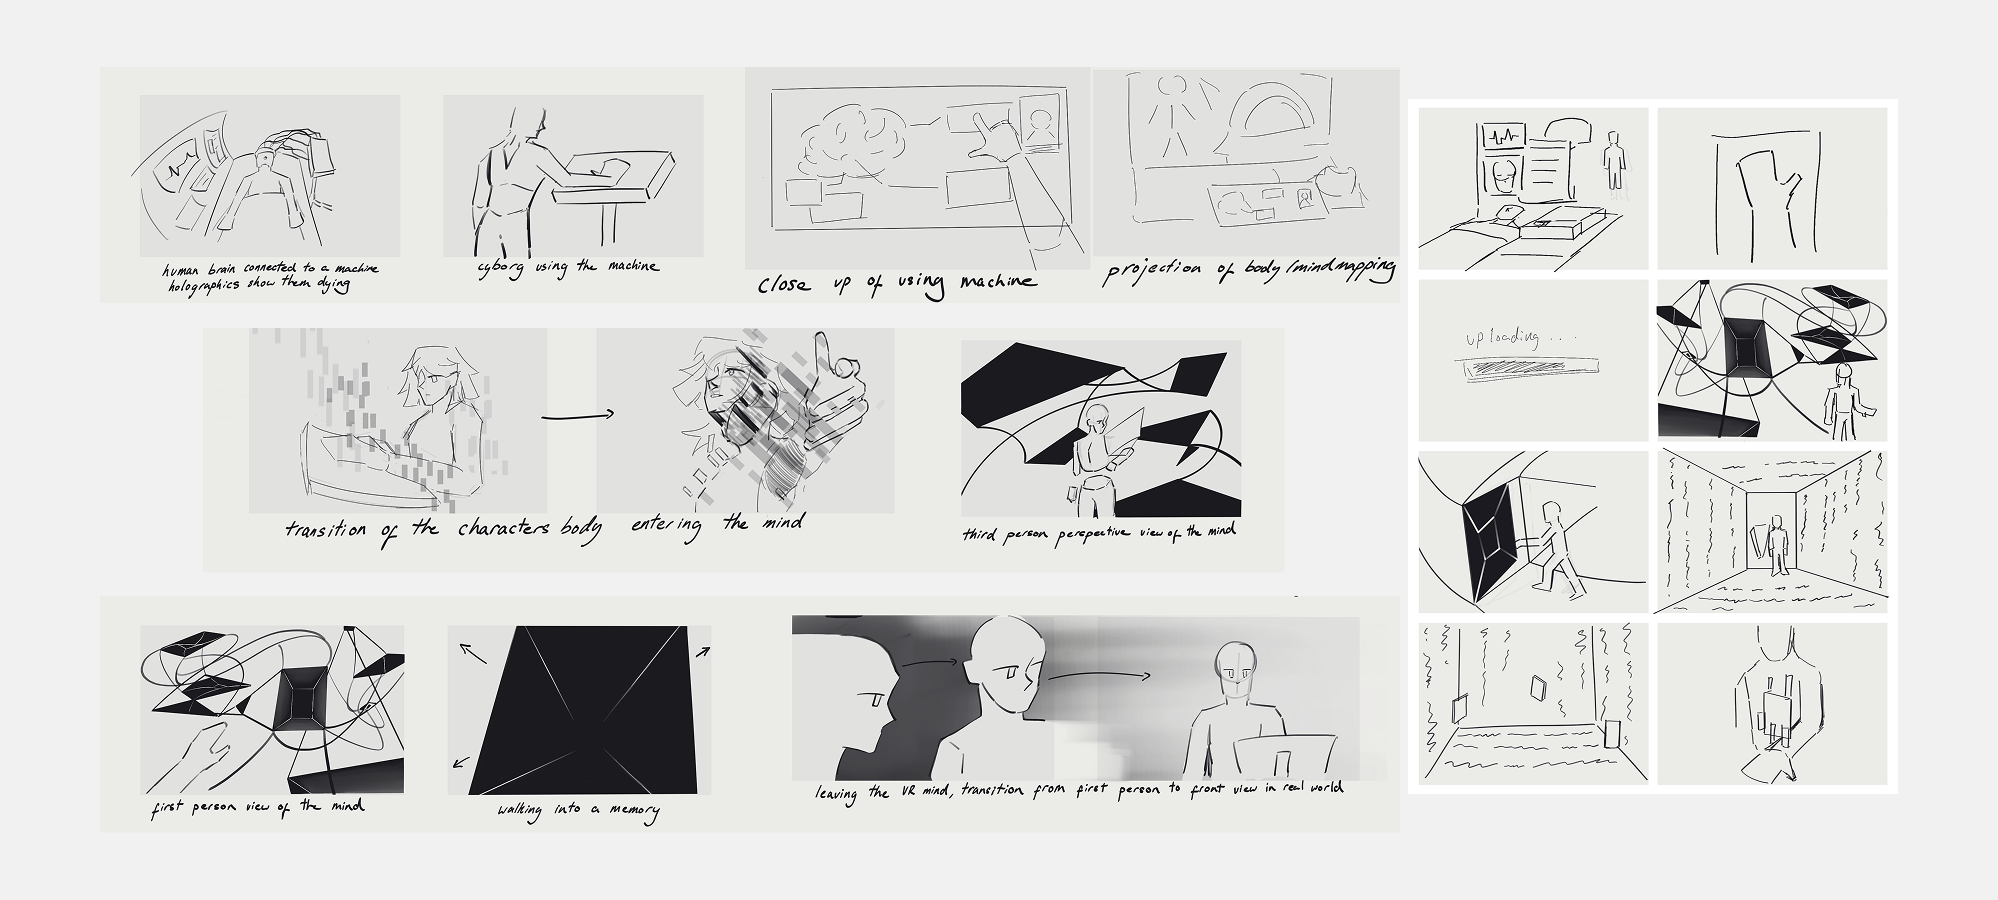 human brain connected to a machine
holographics show them dying
cyborg using the machine
close up of using machine
projection of body/mindmapping
transition of the characters body entering the mind
third person perspective view of the mind
first person view of the mind
walking into a memory
leaving the VR mind, transition from first person to front view in real world
uploading....